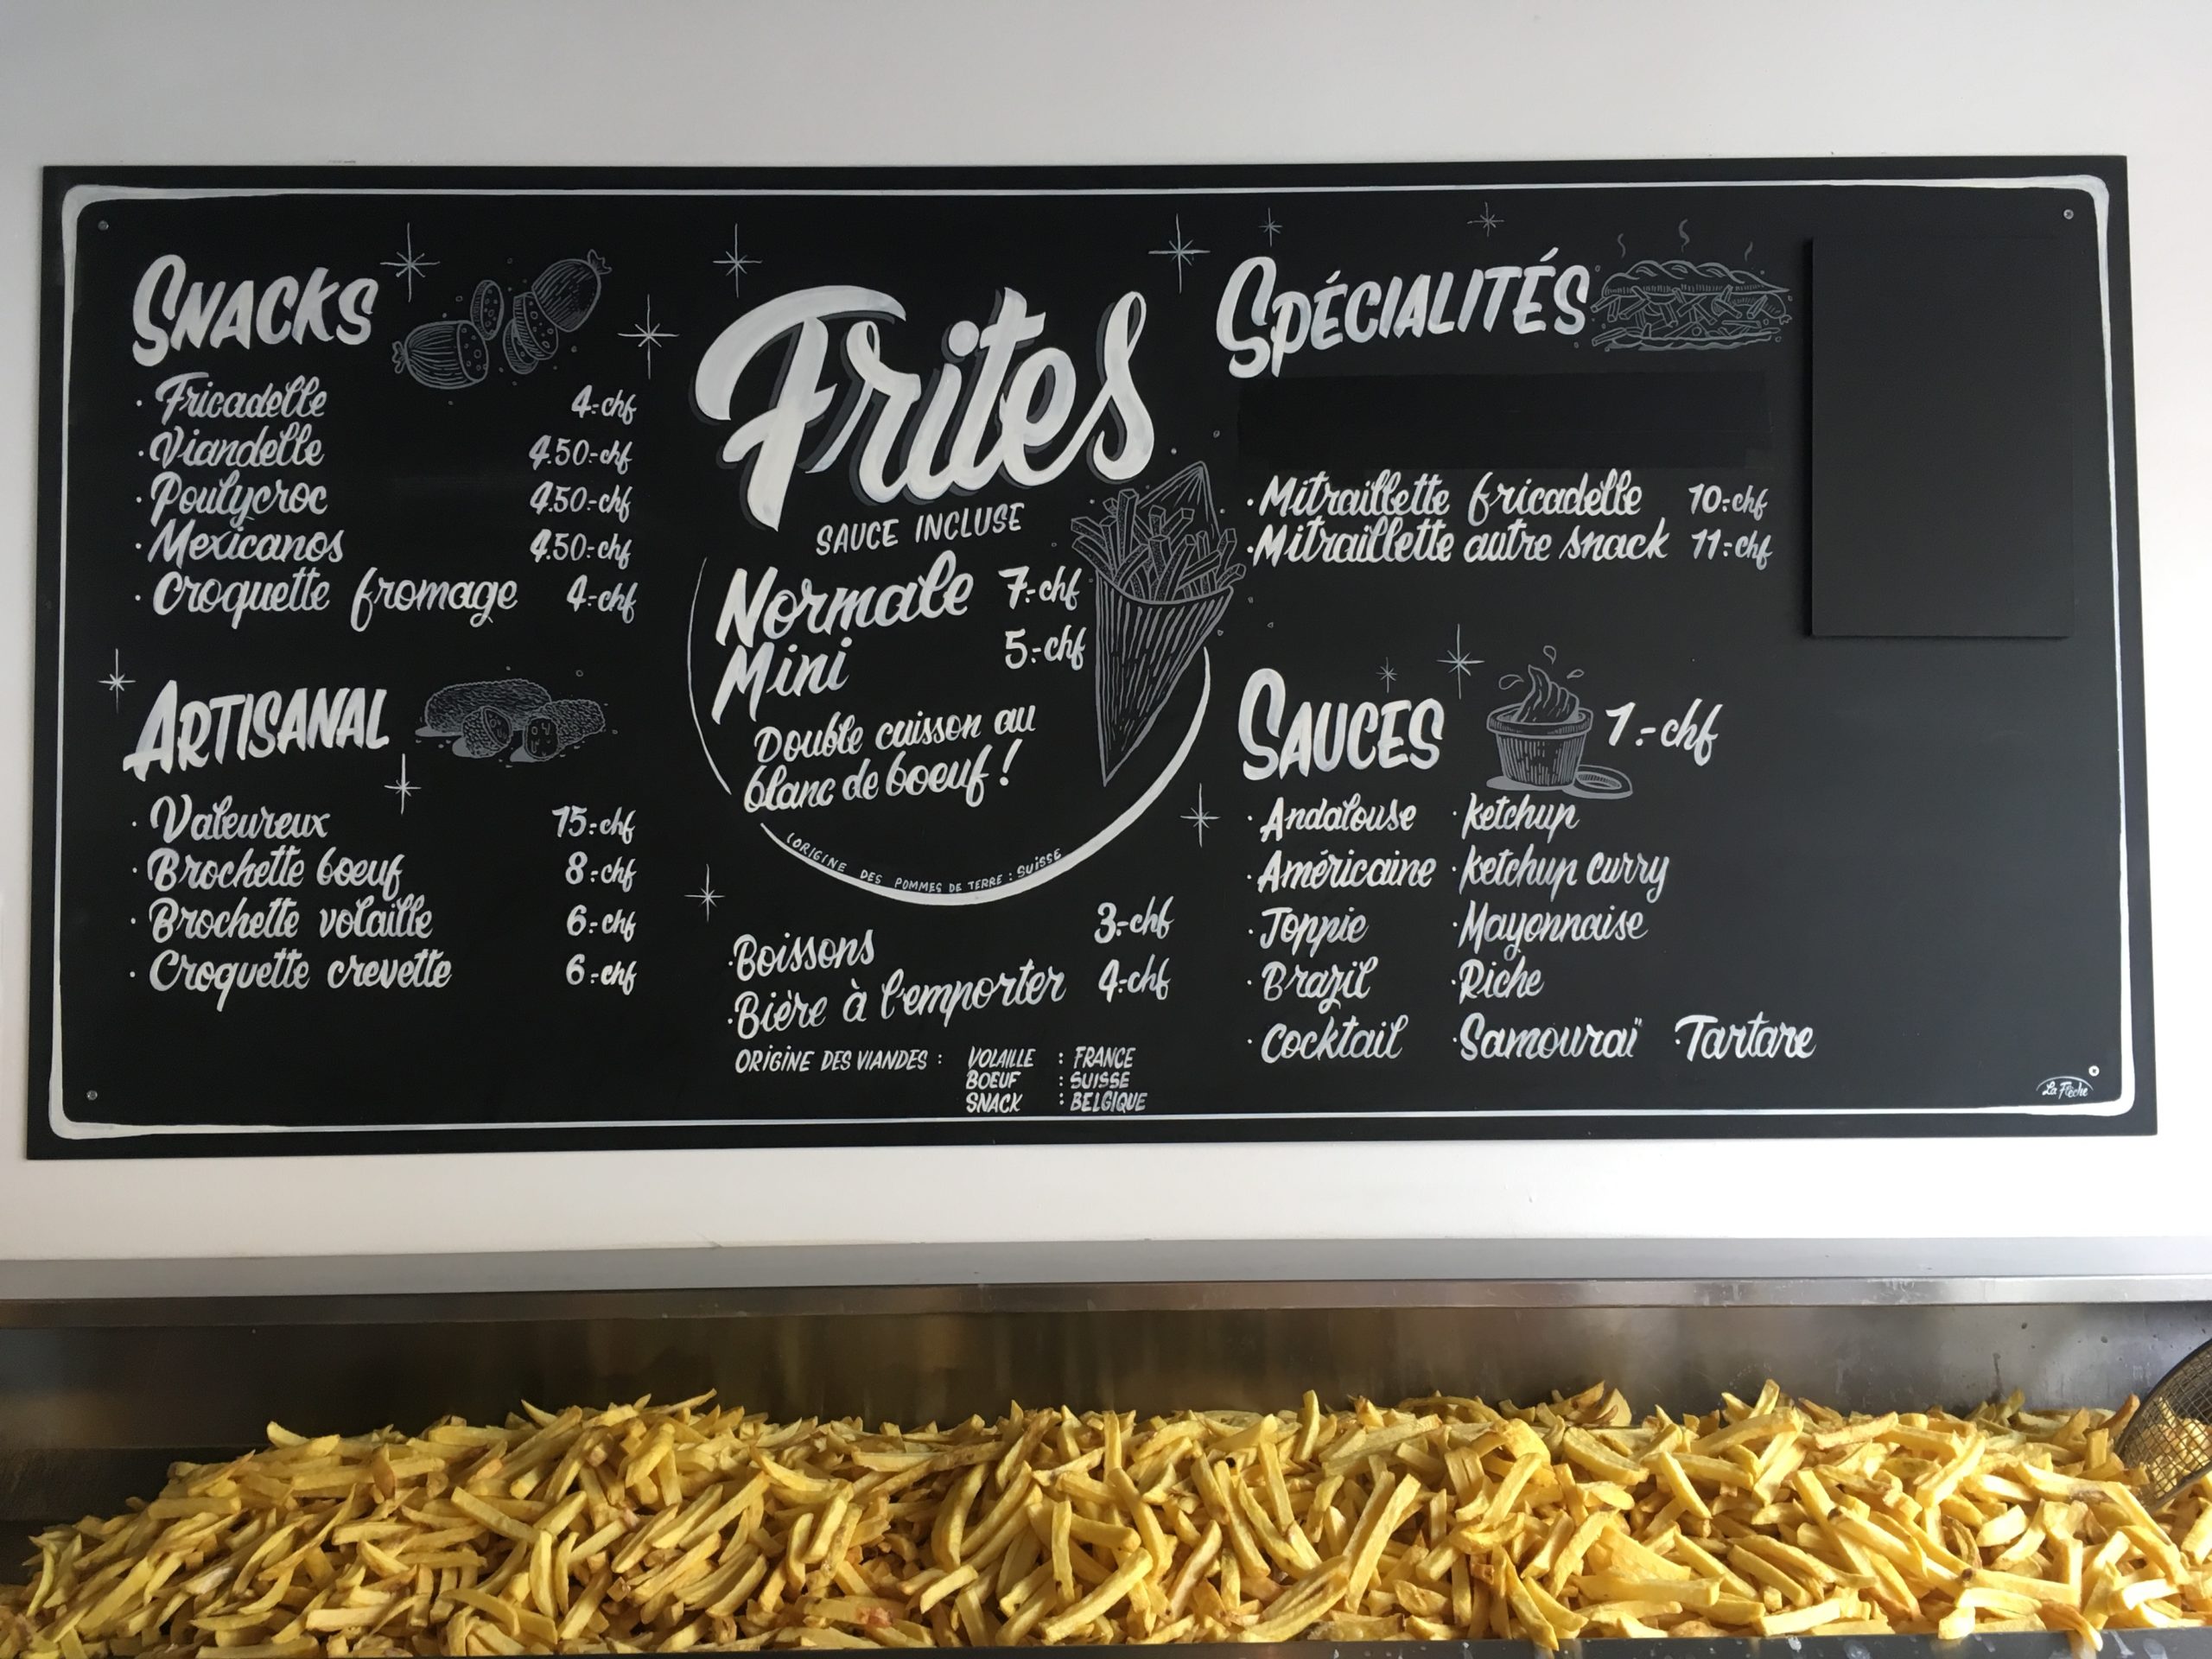 SNACKS
· Fricadelle 4.-chf
· Viandelle 4.50.-chf
· Poulycroc 4.50.-chf
· Mexicanos 4.50.-chf
· Croquette fromage 4.-chf
ARTISANAL
· Valeureux 15.-chf
· Brochette boeuf 8.-chf
· Brochette volaille 6.-chf
· Croquette crevette 6.-chf
Frites
SAUCE INCLUSE
Normale 7.-chf
Mini 5.-chf
Double cuisson au
blanc de boeuf !
(ORIGINE DES POMMES DE TERRE : SUISSE
· Boissons 3.-chf
· Bière à l'emporter 4.-chf
ORIGINE DES VIANDES : VOLAILLE : FRANCE
BOEUF : SUISSE
SNACK : BELGIQUE
SPÉCIALITÉS
· Mitraillette fricadelle 10.-chf
· Mitraillette autre snack 11.-chf
SAUCES 1.-chf
· Andalouse · Ketchup
· Américaine · Ketchup curry
· Joppie · Mayonnaise
· Brazil · Riche
· Cocktail · Samouraï · Tartare
La Flèche